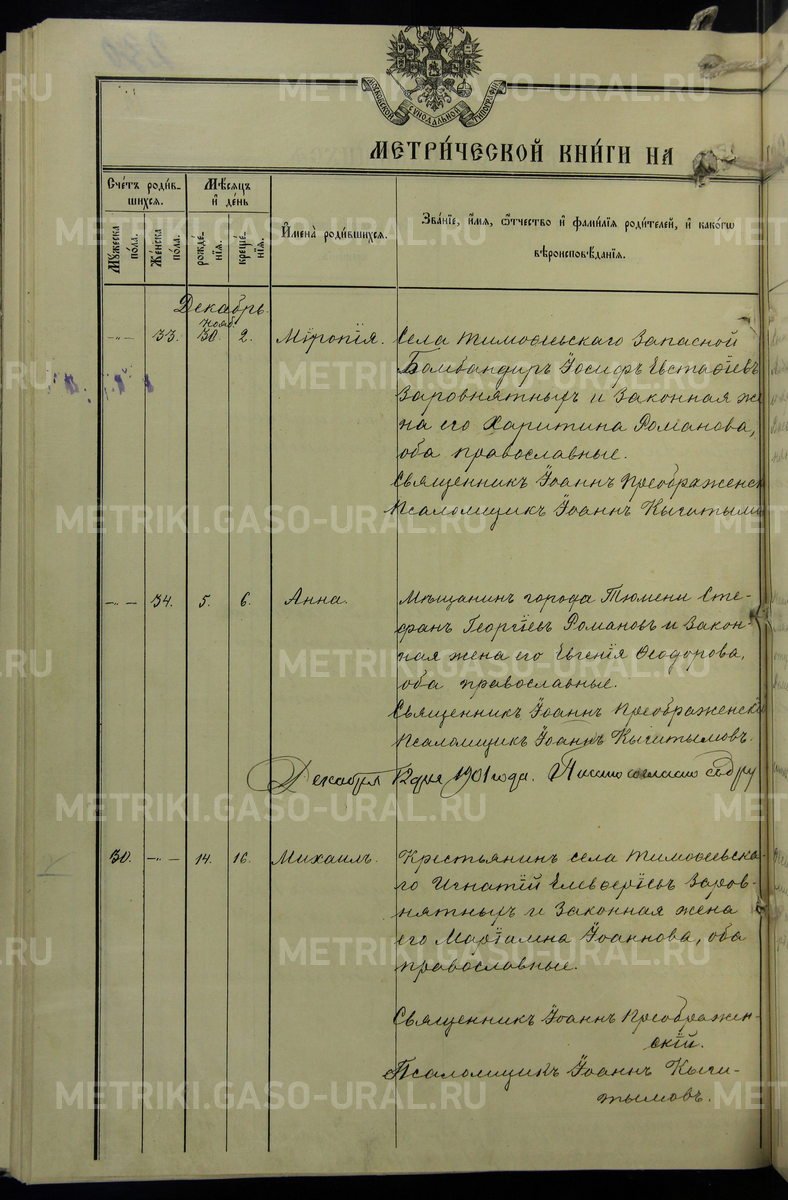 МОСКОВСКОЙ СѴНОДАЛЬНОЙ ТИПОГРАФІИ
МЕТРИ́ЧЕСКОЙ КНИ́ГИ НА
Сче́тъ роди́в-
шихся.
Мѣ́сяцъ
и҆ де́нь
Мꙋ́жеска
по́ла.
Же́нска
по́ла.
рожде́-
нїѧ.
креще́-
нїѧ.
И҆мена̀ роди́вшихся.
Зва́нїе, и҆́мѧ, ѻ҆́тчество и҆ фами́лїѧ роди́телей, и҆ како́гѡ
вѣроисповѣ́данїѧ.
Декабрь.
Нояб.
—〃— 33. 30. 2. Міропія. Села Тимоѳеевскаго Запасной
Бомбандиръ Іосифъ Евстаѳіевъ
Заровнятныхъ и Законная же
на его Харитина Романова,
оба православные.
Священникъ Іоаннъ Преображенск
Псаломщикъ Іоаннъ Кыштымо
—〃— 34. 5. 6. Анна. Мѣщанинъ города Тюмени Сте-
фанъ Георгіевъ Романовъ и Закон-
ная жена его Евгенія Ѳеодорова,
оба православные.
Священникъ Іоаннъ Преображенскій
Псаломщикъ Іоаннъ Кыштымовъ.
Декабря 12 дня 1901 года.
30. —〃— 14. 16. Михаилъ. Крестьянинъ села Тимоѳеевска-
го Игнатій Елевѳеріевъ Заров-
нятныхъ и Законная жена
его Маріамна Іоаннова, оба
православные.
Священникъ Іоаннъ Преображен-
скій.
Псаломщикъ Іоаннъ Кыш-
тымовъ.
METRIKI.GASO-URAL.RU